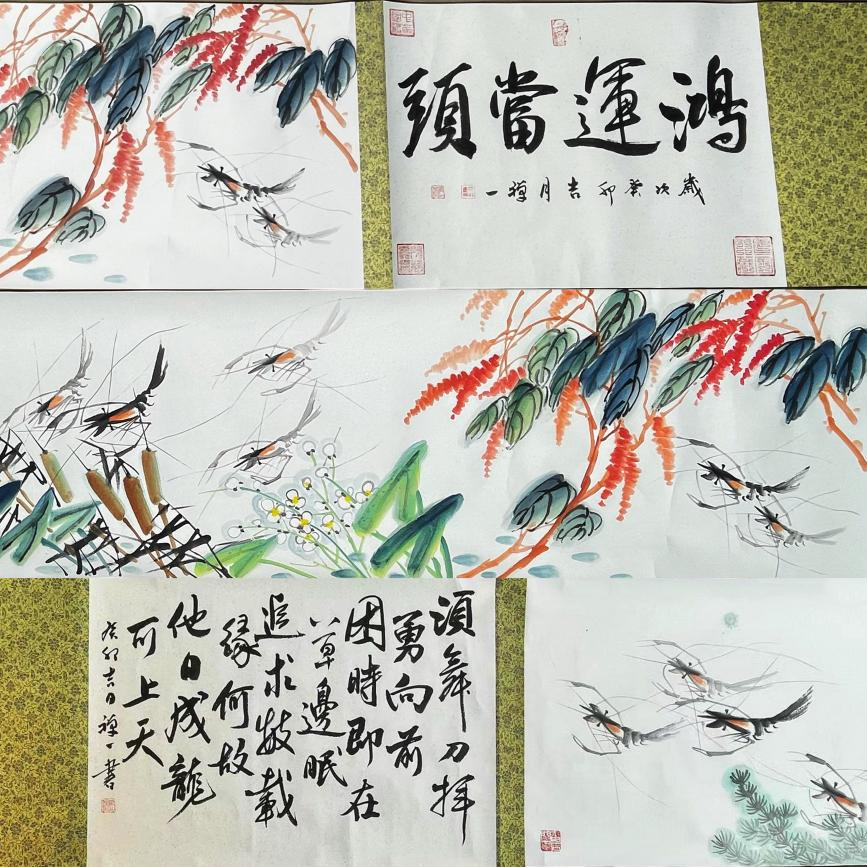 鴻運當頭
歲次癸卯吉月禪一
須舞刀揮
勇向前
困時即在
草邊眠
追求數載
緣何故
他日成龍
可上天
癸卯吉日禪一書